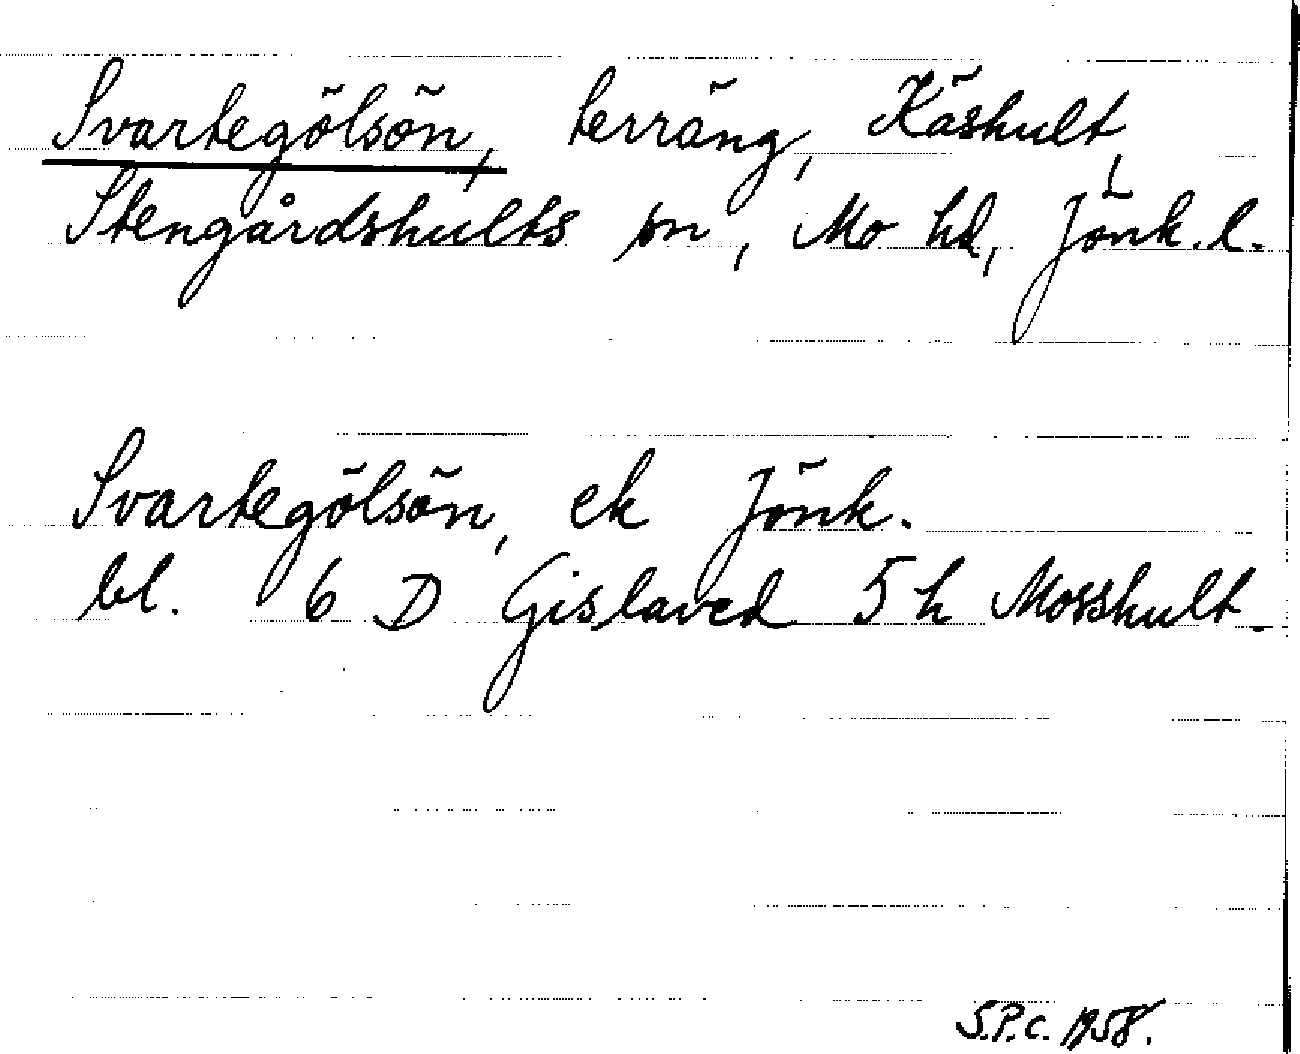 Svartegölsön, terräng, Käshult,
Stengårdshults sn, Mo hd, Jönk. l.
Svartegölsön, ek Jönk.
bl. 6 D Gislaved 5 h Mosshult.
S.P.C. 1958.